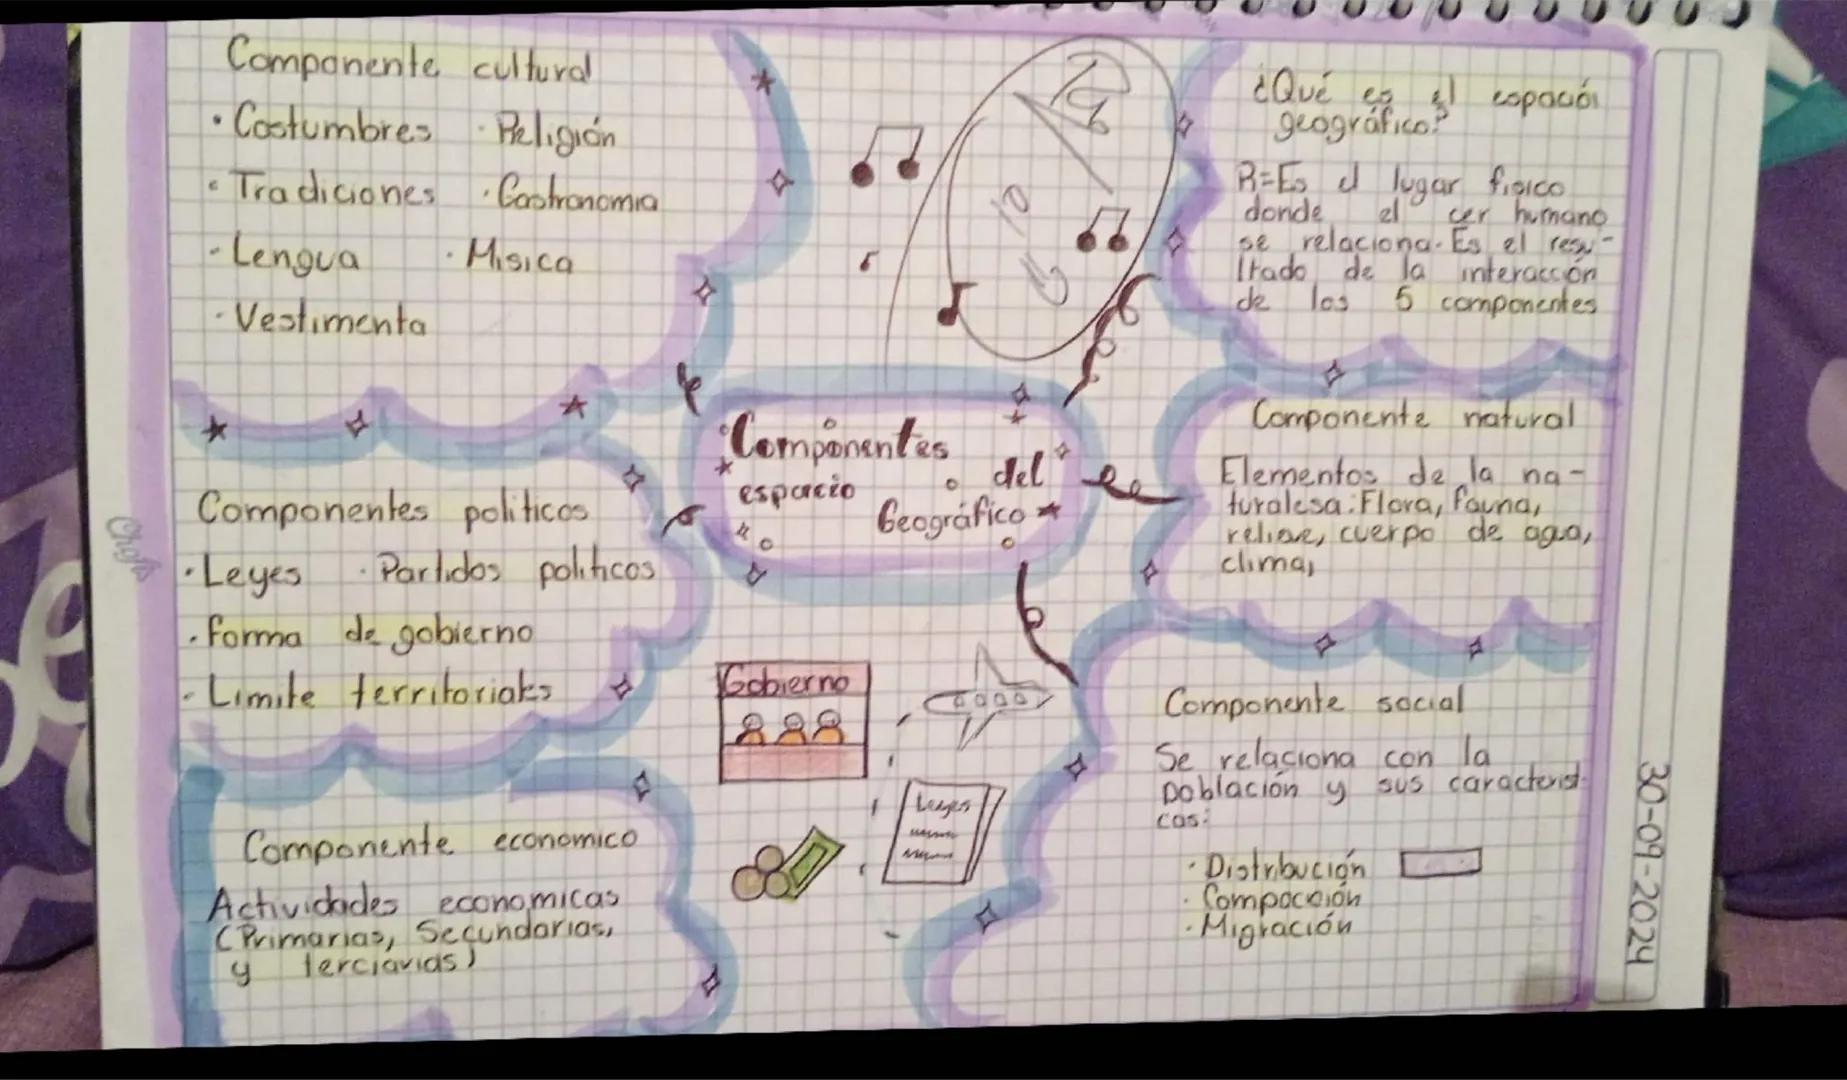 Componente cultural
· Costumbres · Religión
· Tradiciones · Gastronomia
· Lengua · Misica
· Vestimenta
¿Qué es el espación
geográfico?
R=Es el lugar fisico
donde el cer humano
se relaciona. Es el resu-
ltado de la interacción
de los 5 componentes
Componentes
del
espacio
Geográfico
Componente natural
Elementos de la na-
turalesa: Flora, fauna,
relieve, cuerpo de agua,
clima,
Componentes politicos
· Leyes · Partidos politicos
· forma de gobierno
· Limite territoriales
Gobierno
Leyes
Componente social
Se relaciona con la
Población y sus caracterist
cas:
· Distribución
· Compocción
· Migración
Componente economico
Actividades economicas
(Primarias, Secundarias,
y terciarias)
30-09-2024